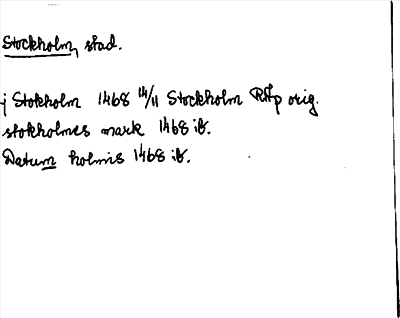 Stockholm, stad.
j Stokholm 1468 14/11 Stockholm RAp orig.
stokholmes mark 1468 ib.
Datum holmis 1468 ib.